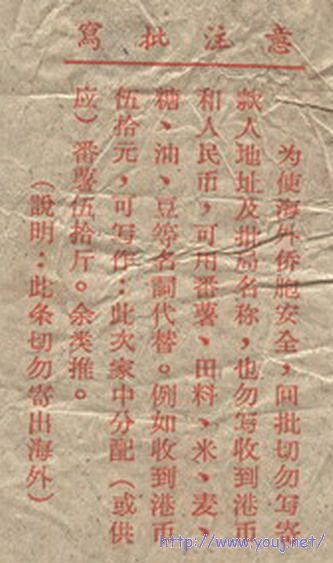 寫批注意
为使海外侨胞安全，回批切勿写寄
款人地址及批局名称，也勿写收到港币
和人民币，可用番薯、田料、米、麦、
糖、油、豆等名詞代替。例如收到港币
伍拾元，可写作：此次家中分配（或供
应）番薯伍拾斤。余类推。
（說明：此条切勿寄出海外）
http://www.youj.net/